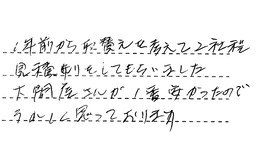 1年前から取替えを考えて2社程
見積取りをしてもらいました
大問屋さんが1番安かったので
うれしく思っております